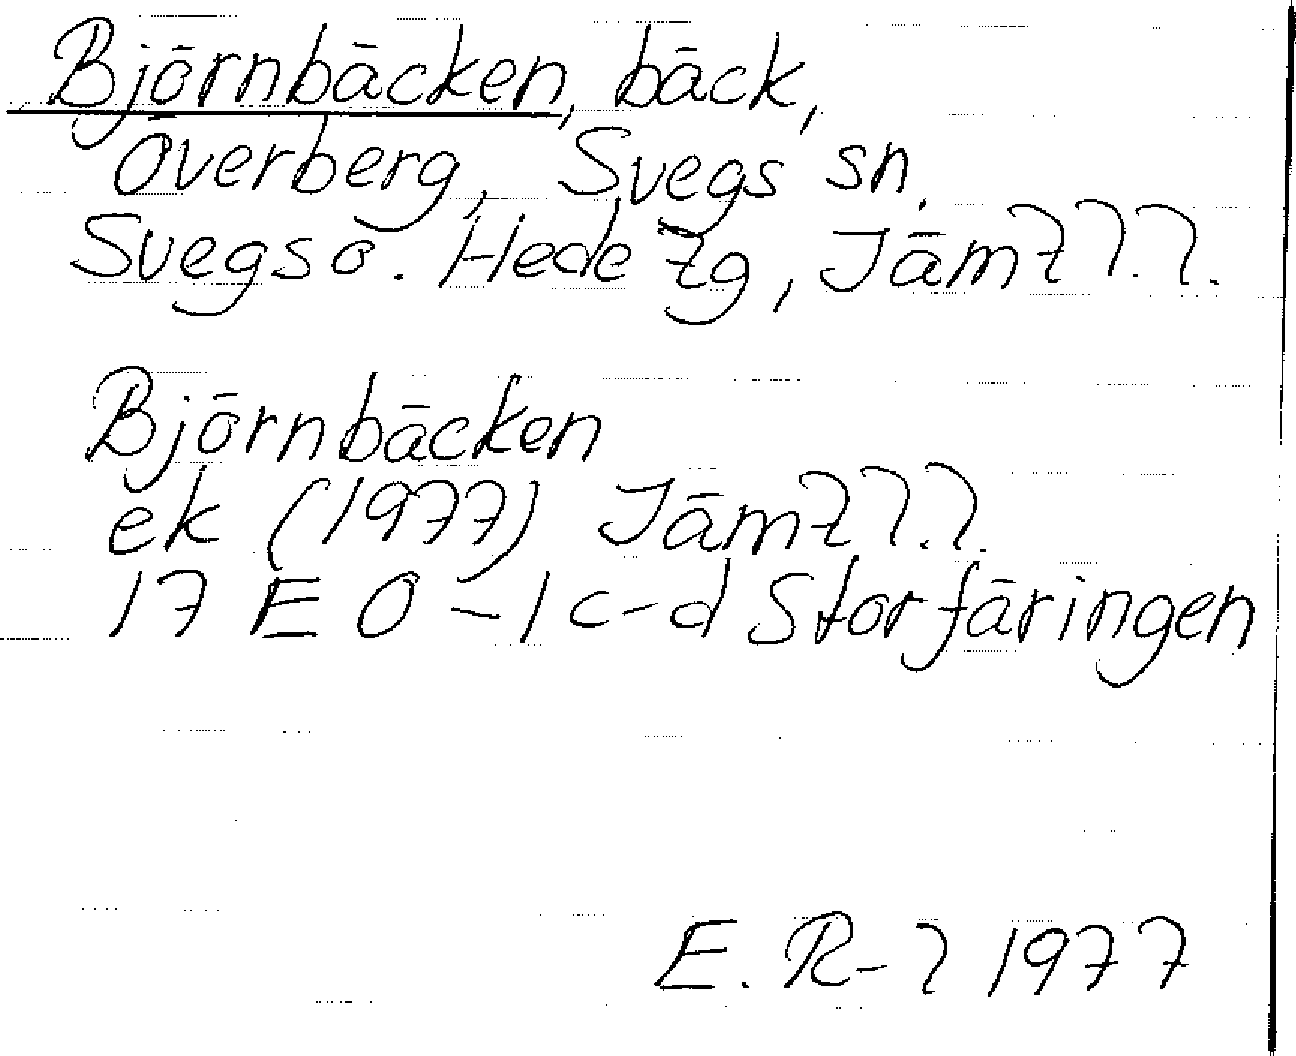 Björnbäcken, bäck,
Överberg, Svegs sn,
Svegs o. Hede tg, Jämtl.l.
Björnbäcken
ek (1977) Jämtl.l.
17 E 0-1 c-d Storfäringen
E. R-? 1977